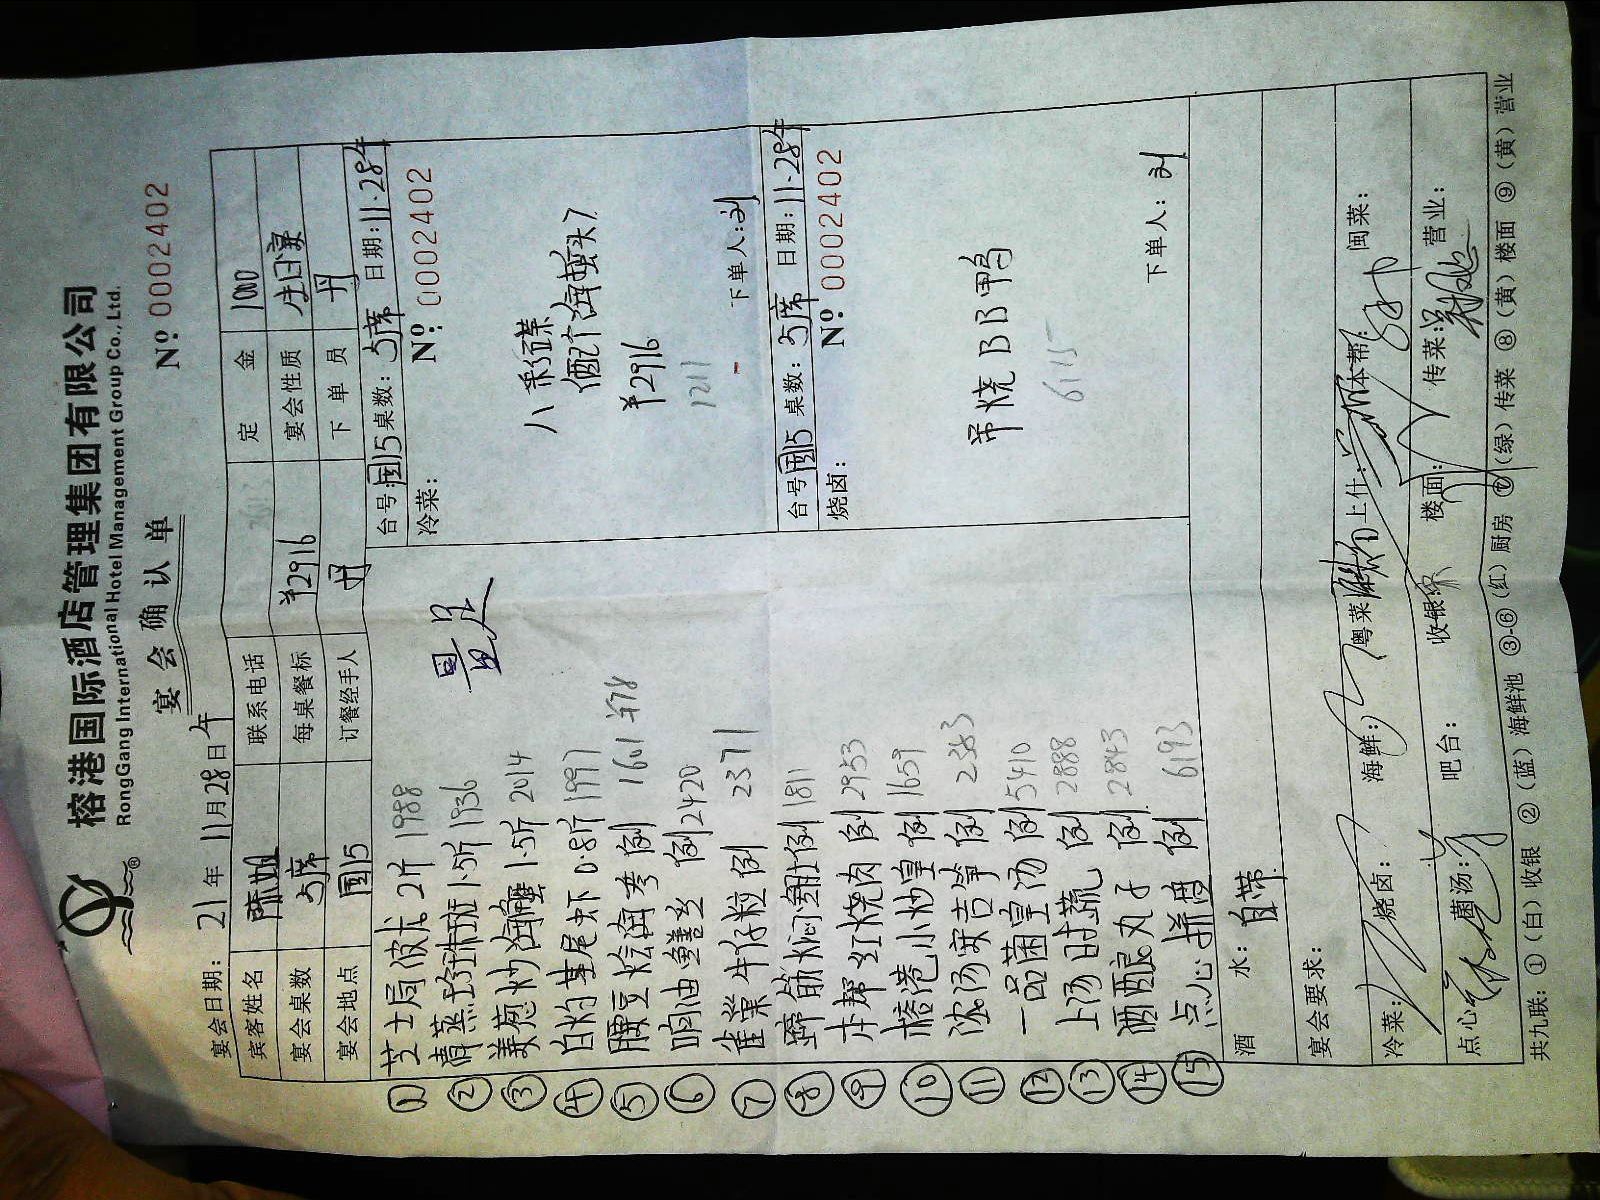 榕港国际酒店管理集团有限公司
RongGang International Hotel Management Group Co., Ltd.
®
宴会确认单
Nº 0002402
宴会日期: 21年 11月28日午
宾客姓名 联系电话 定金 1000
宴会桌数 5席 每桌餐标 ¥2916 宴会性质 生日宴
宴会地点 国15 订餐经手人 丹 下单员 丹
① 芝士局波龙 2斤 1988
② 清蒸珍珠斑 1.5斤 1936
③ 姜葱炒海蟹 1.5斤 2014
④ 白灼基尾虾 0.8斤 1997
⑤ 腰豆烩海参 例 1601
⑥ 响油鳝丝 例 2420
⑦ 雀巢牛仔粒 例 2371
⑧ 蹄筋焖翅 例 1811
⑨ 本帮红烧肉 例 2953
⑩ 榕港小炒皇 例 1659
⑪ 浓汤实吉笋 例 2383
⑫ 一品菌皇汤 例 5410
⑬ 上汤时蔬 例 2888
⑭ 酒酿丸子 例 2843
⑮ 点心拼盘 例 6193
量足
台号: 国15 桌数: 5席 日期: 11.28午
冷菜: Nº: 0002402
八彩碟
配海蜇头
¥2916
1211
下单人: 刘
台号 国15 桌数: 5席 日期: 11.28午
烧卤: Nº: 0002402
吊烧BB鸭
6115
下单人: 刘
酒水: 自带
宴会要求:
冷菜: 烧卤: 海鲜: 粤菜 上什: 本帮: 闽菜:
点心: 菌汤: 吧台: 收银: 楼面: 传菜: 营业:
共九联: ①(白)收银 ②(蓝)海鲜池 ③-⑥(红)厨房 ⑦(绿)传菜 ⑧(黄)楼面 ⑨(黄)营业